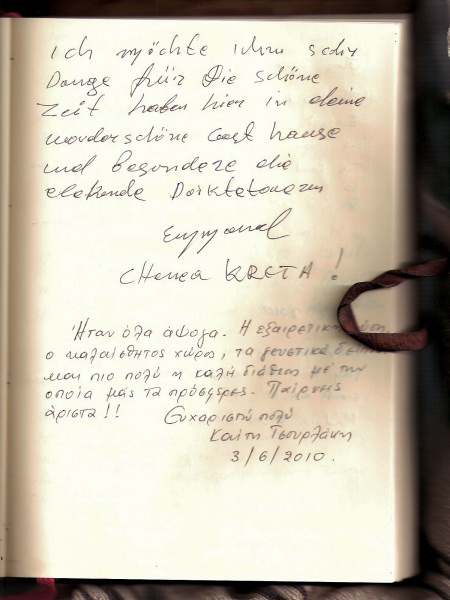 ich möchte ihm sehr
Dange für die schöne
Zeit haben hier in deine
wonderschöne Gast hause
und besondere die
Emmanouel
CHANIA KRETA !
Ήταν όλα άψογα. Η εξαιρετική
ο καλαίσθητος χώρος, τα γευστικά
και πιο πολύ η καλή διάθεση με την
οποία μας τα πρόσφερες. Παίρνεις
άριστα!!
Ευχαριστώ πολύ
Καίτη Τσουρλάκη
3/6/2010.